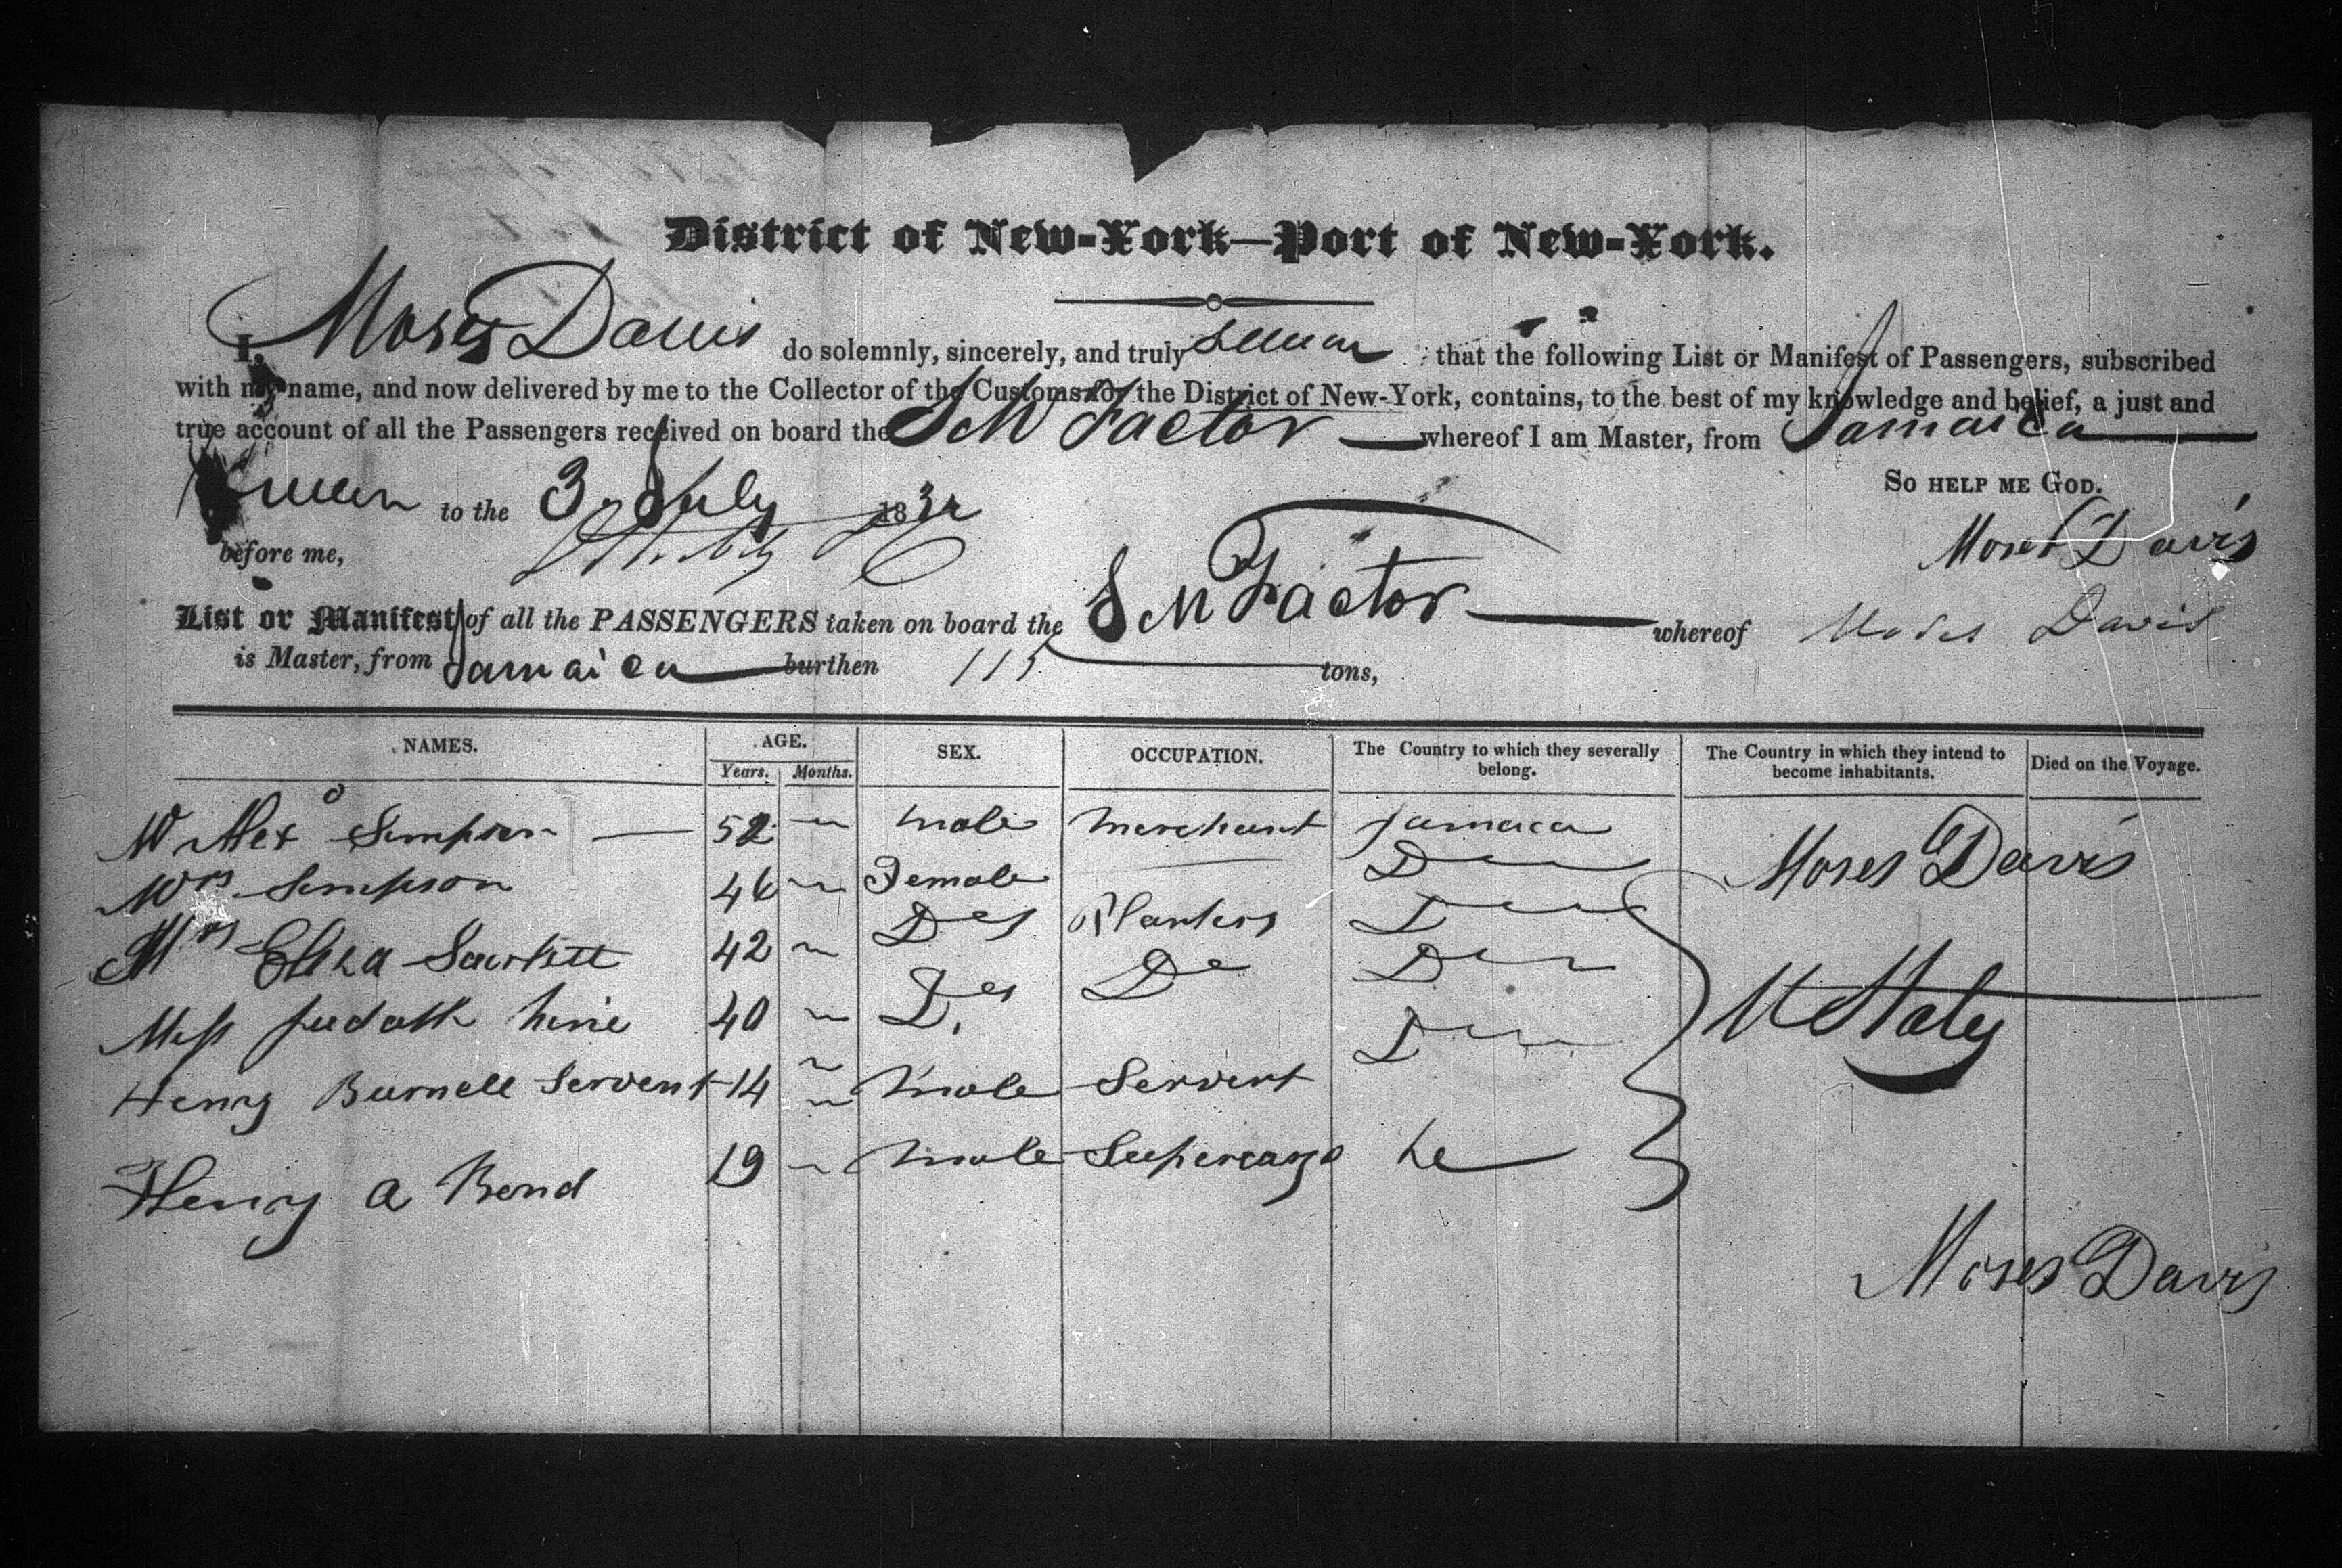 District of New-York—Port of New-York.
I, Moses Davis do solemnly, sincerely, and truly swear that the following List or Manifest of Passengers, subscribed
with my name, and now delivered by me to the Collector of the Customs for the District of New-York, contains, to the best of my knowledge and belief, a just and
true account of all the Passengers received on board the Sch Factor whereof I am Master, from Jamaica
So help me God.
Sworn to the 3 July 1832
Moses Davis
before me,
List or Manifest of all the PASSENGERS taken on board the Sch Factor whereof Moses Davis
is Master, from Jamaica burthen 115 tons,
NAMES. AGE. SEX. OCCUPATION. The Country to which they severally belong. The Country in which they intend to become inhabitants. Died on the Voyage.
Years. Months.
Mr Alex Simpson 52 male merchant Jamaica
Mrs Simpson 46 Female Do
Moses Davis
Mrs Eliza 42 Do Planters Do
Miss Judath 40 Do Do Do
U States
Henry Burnell Servent 14 male Servent Do
Henry A Bond 19 male Supercargo
Moses Davis